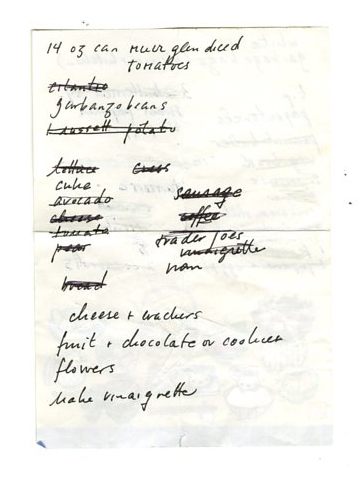 14 oz can Muir glen diced
tomatoes
cilantro
garbanzo beans
1 russett potato
lettuce
cuke
avocado
cheese
tomato
pear
bread
cress
sausage
coffee
trader Joes
vinaigrette
naan
cheese + crackers
fruit + chocolate or cookies
flowers
Make vinaigrette